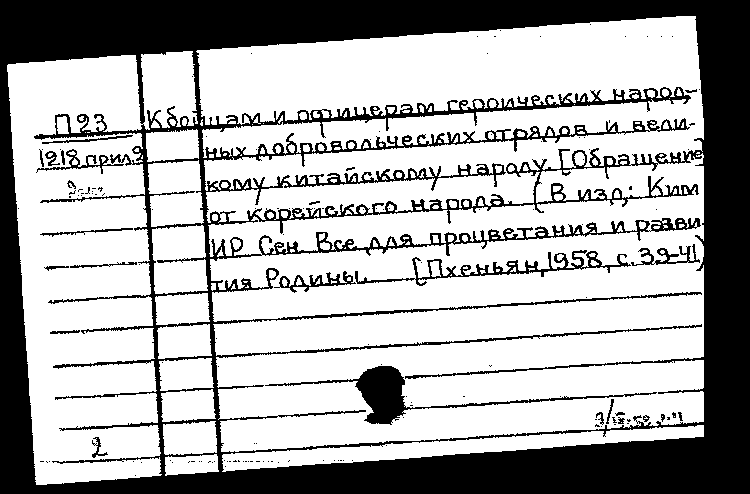 П23 К бойцам и офицерам героических народ-
1218 прил.9 ных добровольческих отрядов и вели-
кому китайскому народу. [Обращение
от корейского народа. (В изд,: Ким
ИР Сен Все для процветания и разви
тия Родины. [Пхеньян, 1958, с. 39-41)
2